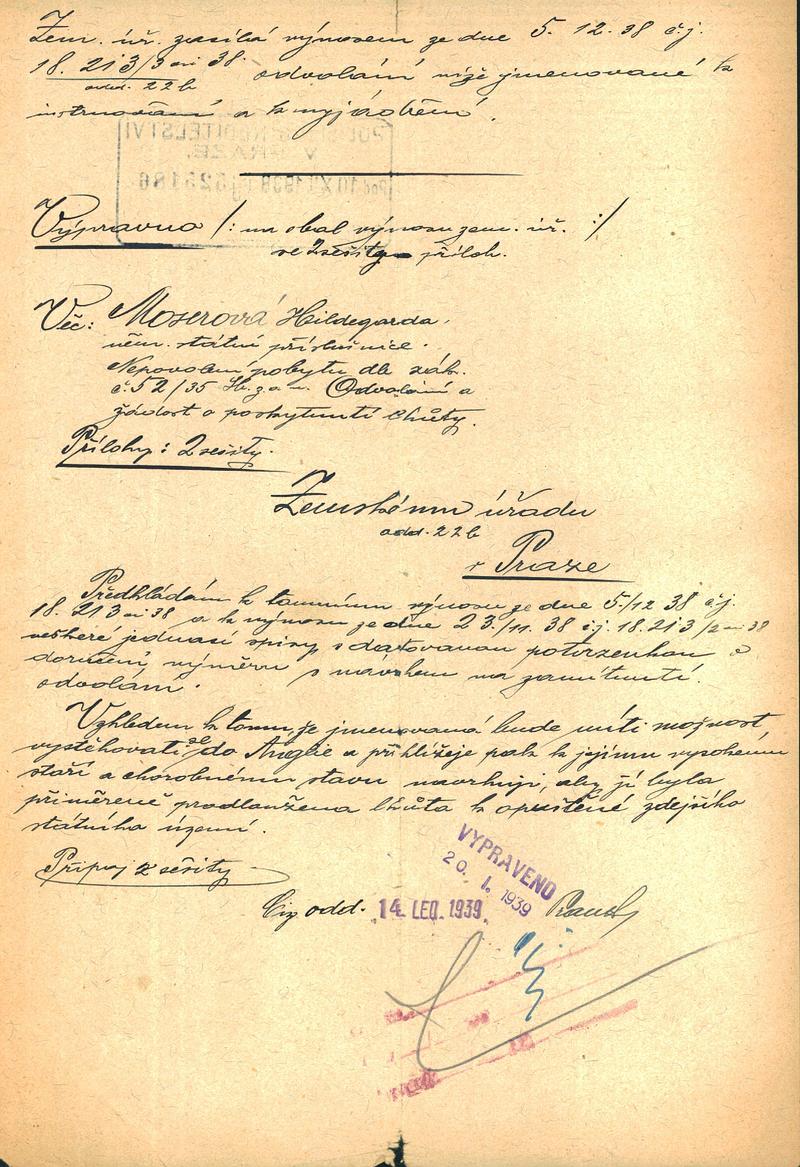 Zem. úř. zasílá výnosem ze dne 5. 12. 38 č.j.
18. 213/3 ai 38. odvolání níže jmenované k
odd. 22b
instruování a k vyjádření.
Výpravna /: na obal výnosu zem. úř. :/
se 2 sešity příloh.
Věc: Moserová Hildegarda,
něm. státní příslušnice.
Nepovolení pobytu dle zák.
č. 52/35 Sb. z. a n. Odvolání a
žádost o poskytnutí lhůty.
Přílohy: 2 sešity.
Zemskému úřadu
odd. 22b
v Praze
Předkládám k tamnímu výnosu ze dne 5./12 38 č.j.
18. 213 ai 38 a k výnosu ze dne 23./11. 38 č.j. 18.213/2 ai 38
veškeré jednací spisy s datovanou potvrzenkou o
doručení výměru s návrhem na zamítnutí
odvolání.
Vzhledem k tomu, že jmenovaná bude míti možnost
vystěhovati se do Anglie a přihlížeje pak k jejímu vysokému
stáří a chorobnému stavu navrhuji, aby jí byla
přiměřeně prodloužena lhůta k opuštění zdejšího
státního území.
Připoj 2 sešity
VYPRAVENO
20. I. 1939
Ciz. odd. 14. LED. 1939